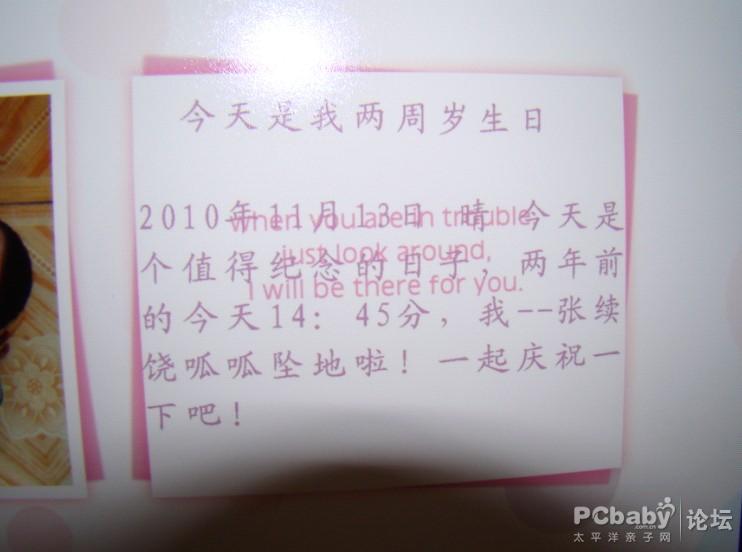 今天是我两周岁生日
2010年11月13日 晴 今天是
个值得纪念的日子，两年前
的今天14：45分，我--张续
饶呱呱坠地啦！一起庆祝一
下吧！
when you are in trouble,
just look around,
I will be there for you.
PCbaby论坛
.com.cn
太平洋亲子网